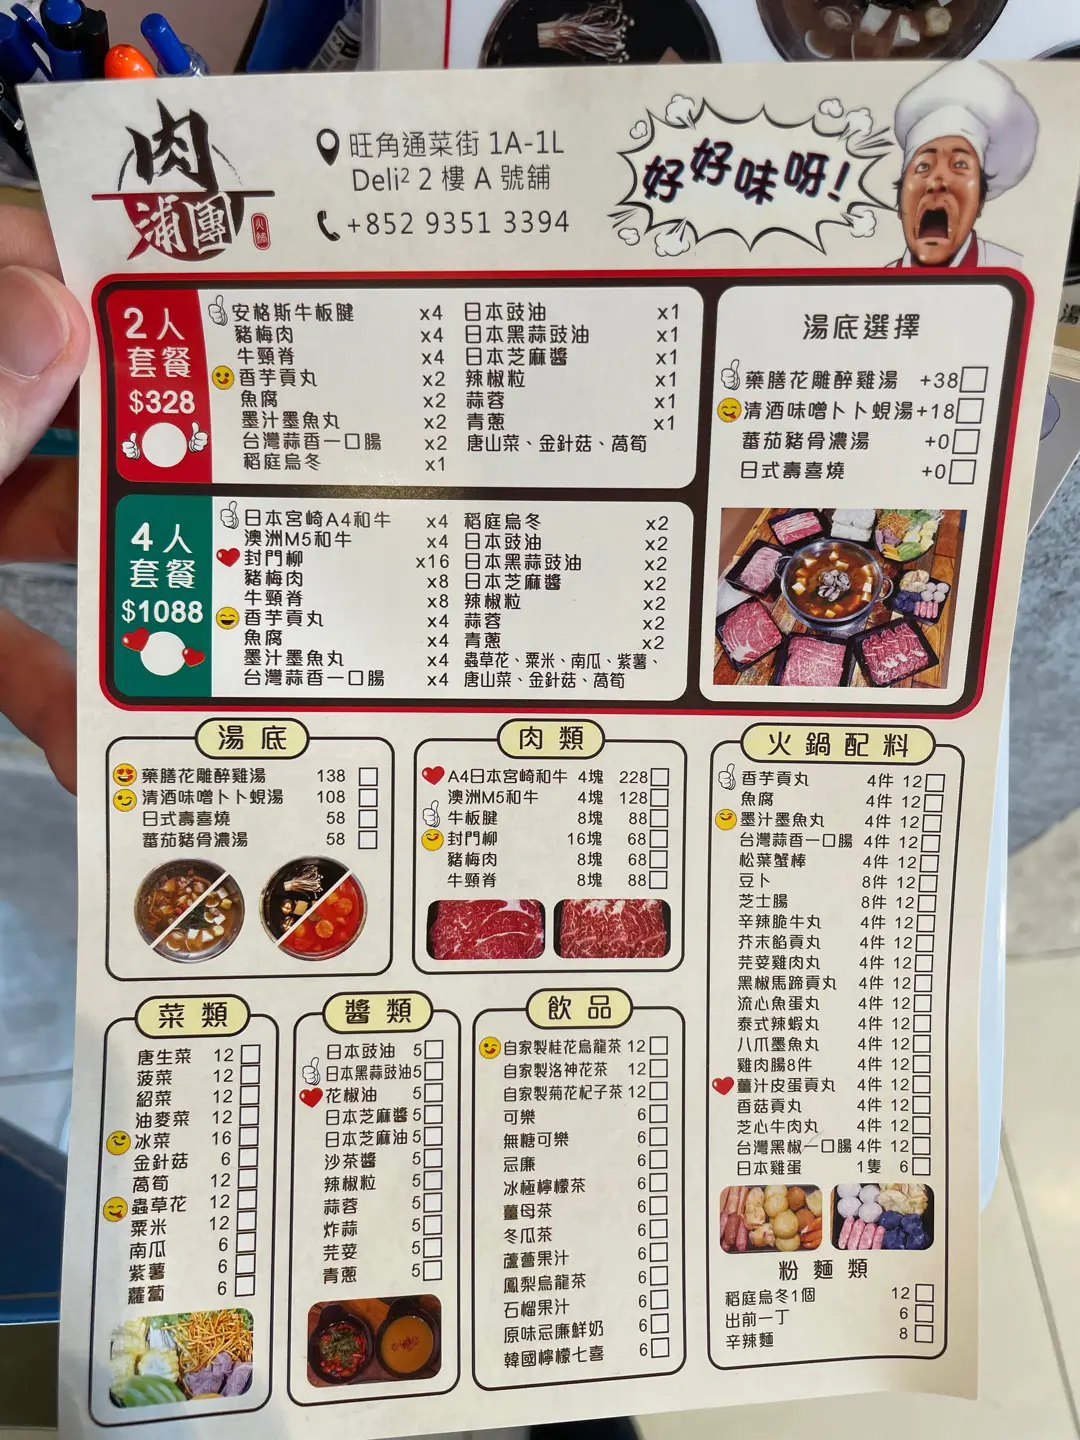 肉
蒲團
火鍋
旺角通菜街 1A-1L
Deli² 2 樓 A 號舖
+852 9351 3394
好好味呀!
2人
套餐
$328
安格斯牛板腱 x4
豬梅肉 x4
牛頸脊 x4
香芋貢丸 x2
魚腐 x2
墨汁墨魚丸 x2
台灣蒜香一口腸 x2
稻庭烏冬 x1
日本豉油 x1
日本黑蒜豉油 x1
日本芝麻醬 x1
辣椒粒 x1
蒜蓉 x1
青蔥 x1
唐山菜、金針菇、萵筍
4人
套餐
$1088
日本宮崎A4和牛 x4
澳洲M5和牛 x4
封門柳 x16
豬梅肉 x8
牛頸脊 x8
香芋貢丸 x4
魚腐 x4
墨汁墨魚丸 x4
台灣蒜香一口腸 x4
稻庭烏冬 x2
日本豉油 x2
日本黑蒜豉油 x2
日本芝麻醬 x2
辣椒粒 x2
蒜蓉 x2
青蔥 x2
蟲草花、粟米、南瓜、紫薯、
唐山菜、金針菇、萵筍
湯底選擇
藥膳花雕醉雞湯 +38
清酒味噌卜卜蜆湯+18
蕃茄豬骨濃湯 +0
日式壽喜燒 +0
湯底
藥膳花雕醉雞湯 138
清酒味噌卜卜蜆湯 108
日式壽喜燒 58
蕃茄豬骨濃湯 58
肉類
A4日本宮崎和牛 4塊 228
澳洲M5和牛 4塊 128
牛板腱 8塊 88
封門柳 16塊 68
豬梅肉 8塊 68
牛頸脊 8塊 88
火鍋配料
香芋貢丸 4件 12
魚腐 4件 12
墨汁墨魚丸 4件 12
台灣蒜香一口腸 4件 12
松葉蟹棒 4件 12
豆卜 8件 12
芝士腸 8件 12
辛辣脆牛丸 4件 12
芥末餡貢丸 4件 12
芫荽雞肉丸 4件 12
黑椒馬蹄貢丸 4件 12
流心魚蛋丸 4件 12
泰式辣蝦丸 4件 12
八爪墨魚丸 4件 12
雞肉腸8件 4件 12
薑汁皮蛋貢丸 4件 12
香菇貢丸 4件 12
芝心牛肉丸 4件 12
台灣黑椒一口腸 4件 12
日本雞蛋 1隻 6
粉麵類
稻庭烏冬1個 12
出前一丁 6
辛辣麵 8
菜類
唐生菜 12
菠菜 12
紹菜 12
油麥菜 12
冰菜 16
金針菇 6
萵筍 12
蟲草花 12
粟米 12
南瓜 6
紫薯 6
蘿蔔 6
醬類
日本豉油 5
日本黑蒜豉油 5
花椒油 5
日本芝麻醬 5
日本芝麻油 5
沙茶醬 5
辣椒粒 5
蒜蓉 5
炸蒜 5
芫荽 5
青蔥 5
飲品
自家製桂花烏龍茶 12
自家製洛神花茶 12
自家製菊花杞子茶 12
可樂 6
無糖可樂 6
忌廉 6
冰極檸檬茶 6
薑母茶 6
冬瓜茶 6
蘆薈果汁 6
鳳梨烏龍茶 6
石榴果汁 6
原味忌廉鮮奶 6
韓國檸檬七喜 6